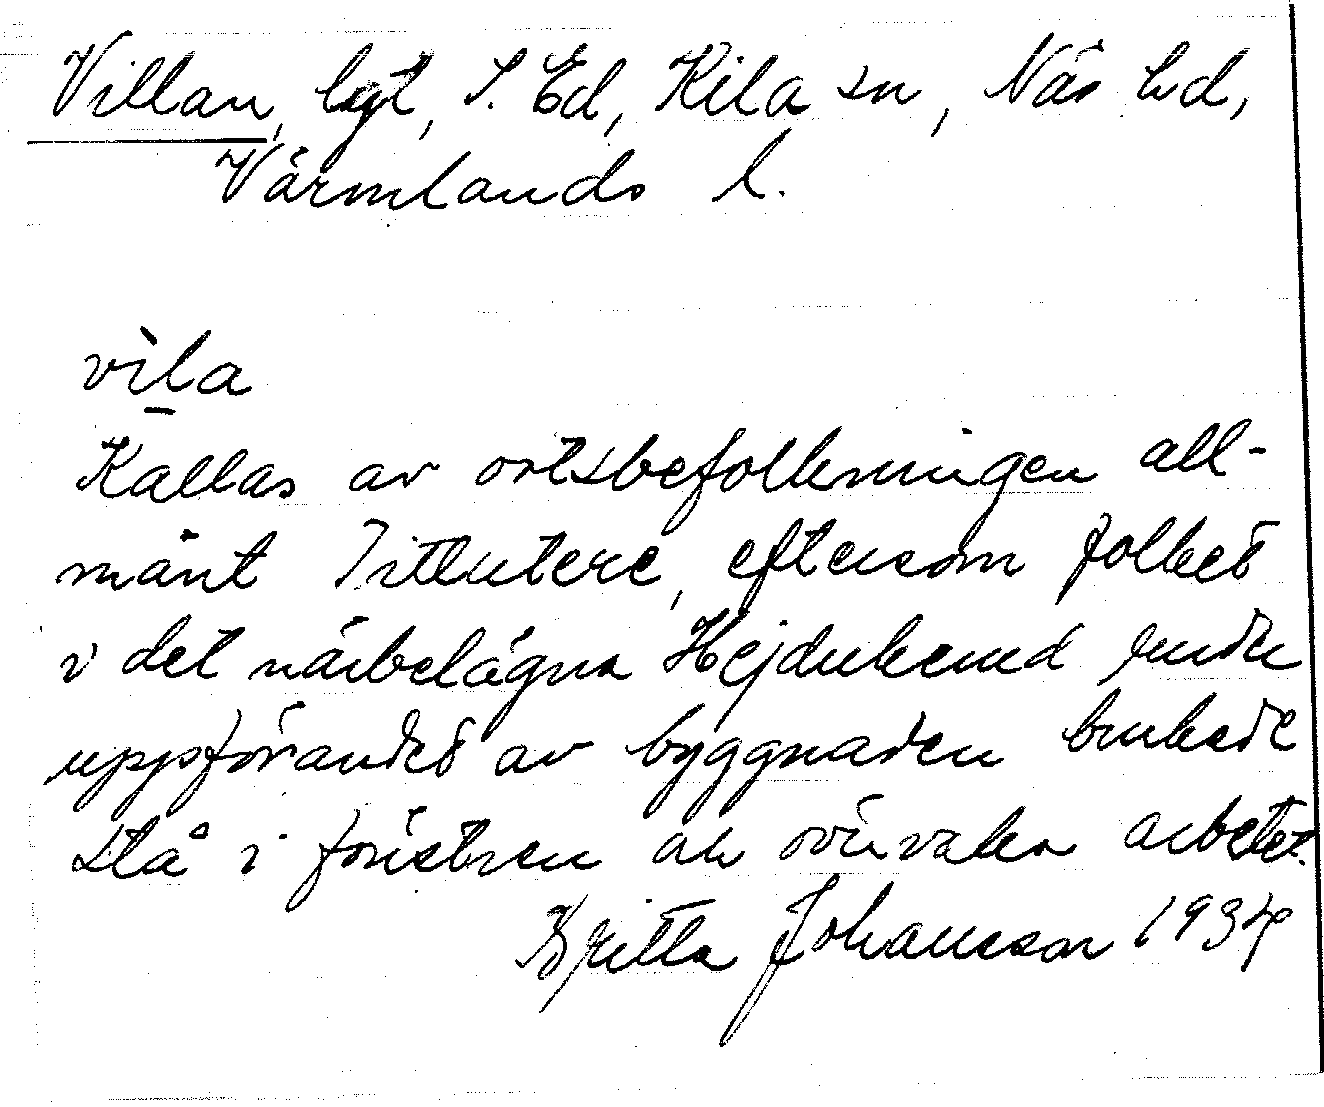 Villan, lgt, S. Ed, Kila sn, Näs hd,
Värmlands l.
vìla
Kallas av ortsbefolkningen all-
mänt Tittutere, eftersom folket
i det närbelägna Hejdukerud under
uppförandet av byggnaden brukade
stå i fönstren och övervaka arbetet.
Britta Johansson 1934